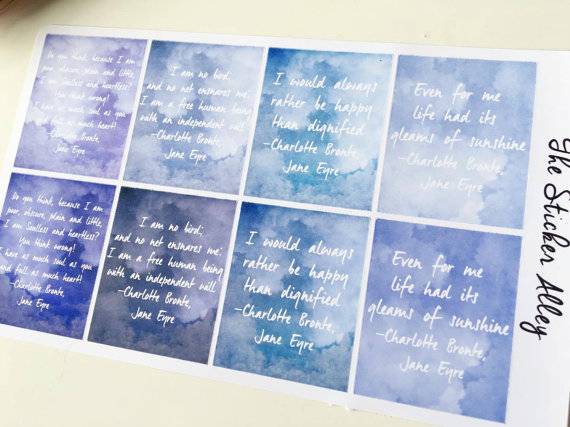 Do you think, because I am
poor, obscure, plain and little,
I am Soulless and heartless?
You think wrong!
I have as much soul as you
and full as much heart!
-Charlotte Bronte,
Jane Eyre
I am no bird;
and no net ensnares me;
I am a free human being
with an independent will
-Charlotte Bronte,
Jane Eyre
I would always
rather be happy
than dignified
-Charlotte Bronte,
Jane Eyre
Even for me
life had its
gleams of sunshine
-Charlotte Bronte,
Jane Eyre
Do you think, because I am
poor, obscure, plain and little,
I am Soulless and heartless?
You think wrong!
I have as much soul as you
and full as much heart!
-Charlotte Bronte,
Jane Eyre
I am no bird;
and no net ensnares me;
I am a free human being
with an independent will
-Charlotte Bronte,
Jane Eyre
I would always
rather be happy
than dignified
-Charlotte Bronte,
Jane Eyre
Even for me
life had its
gleams of sunshine
-Charlotte Bronte,
Jane Eyre
The Sticker Alley